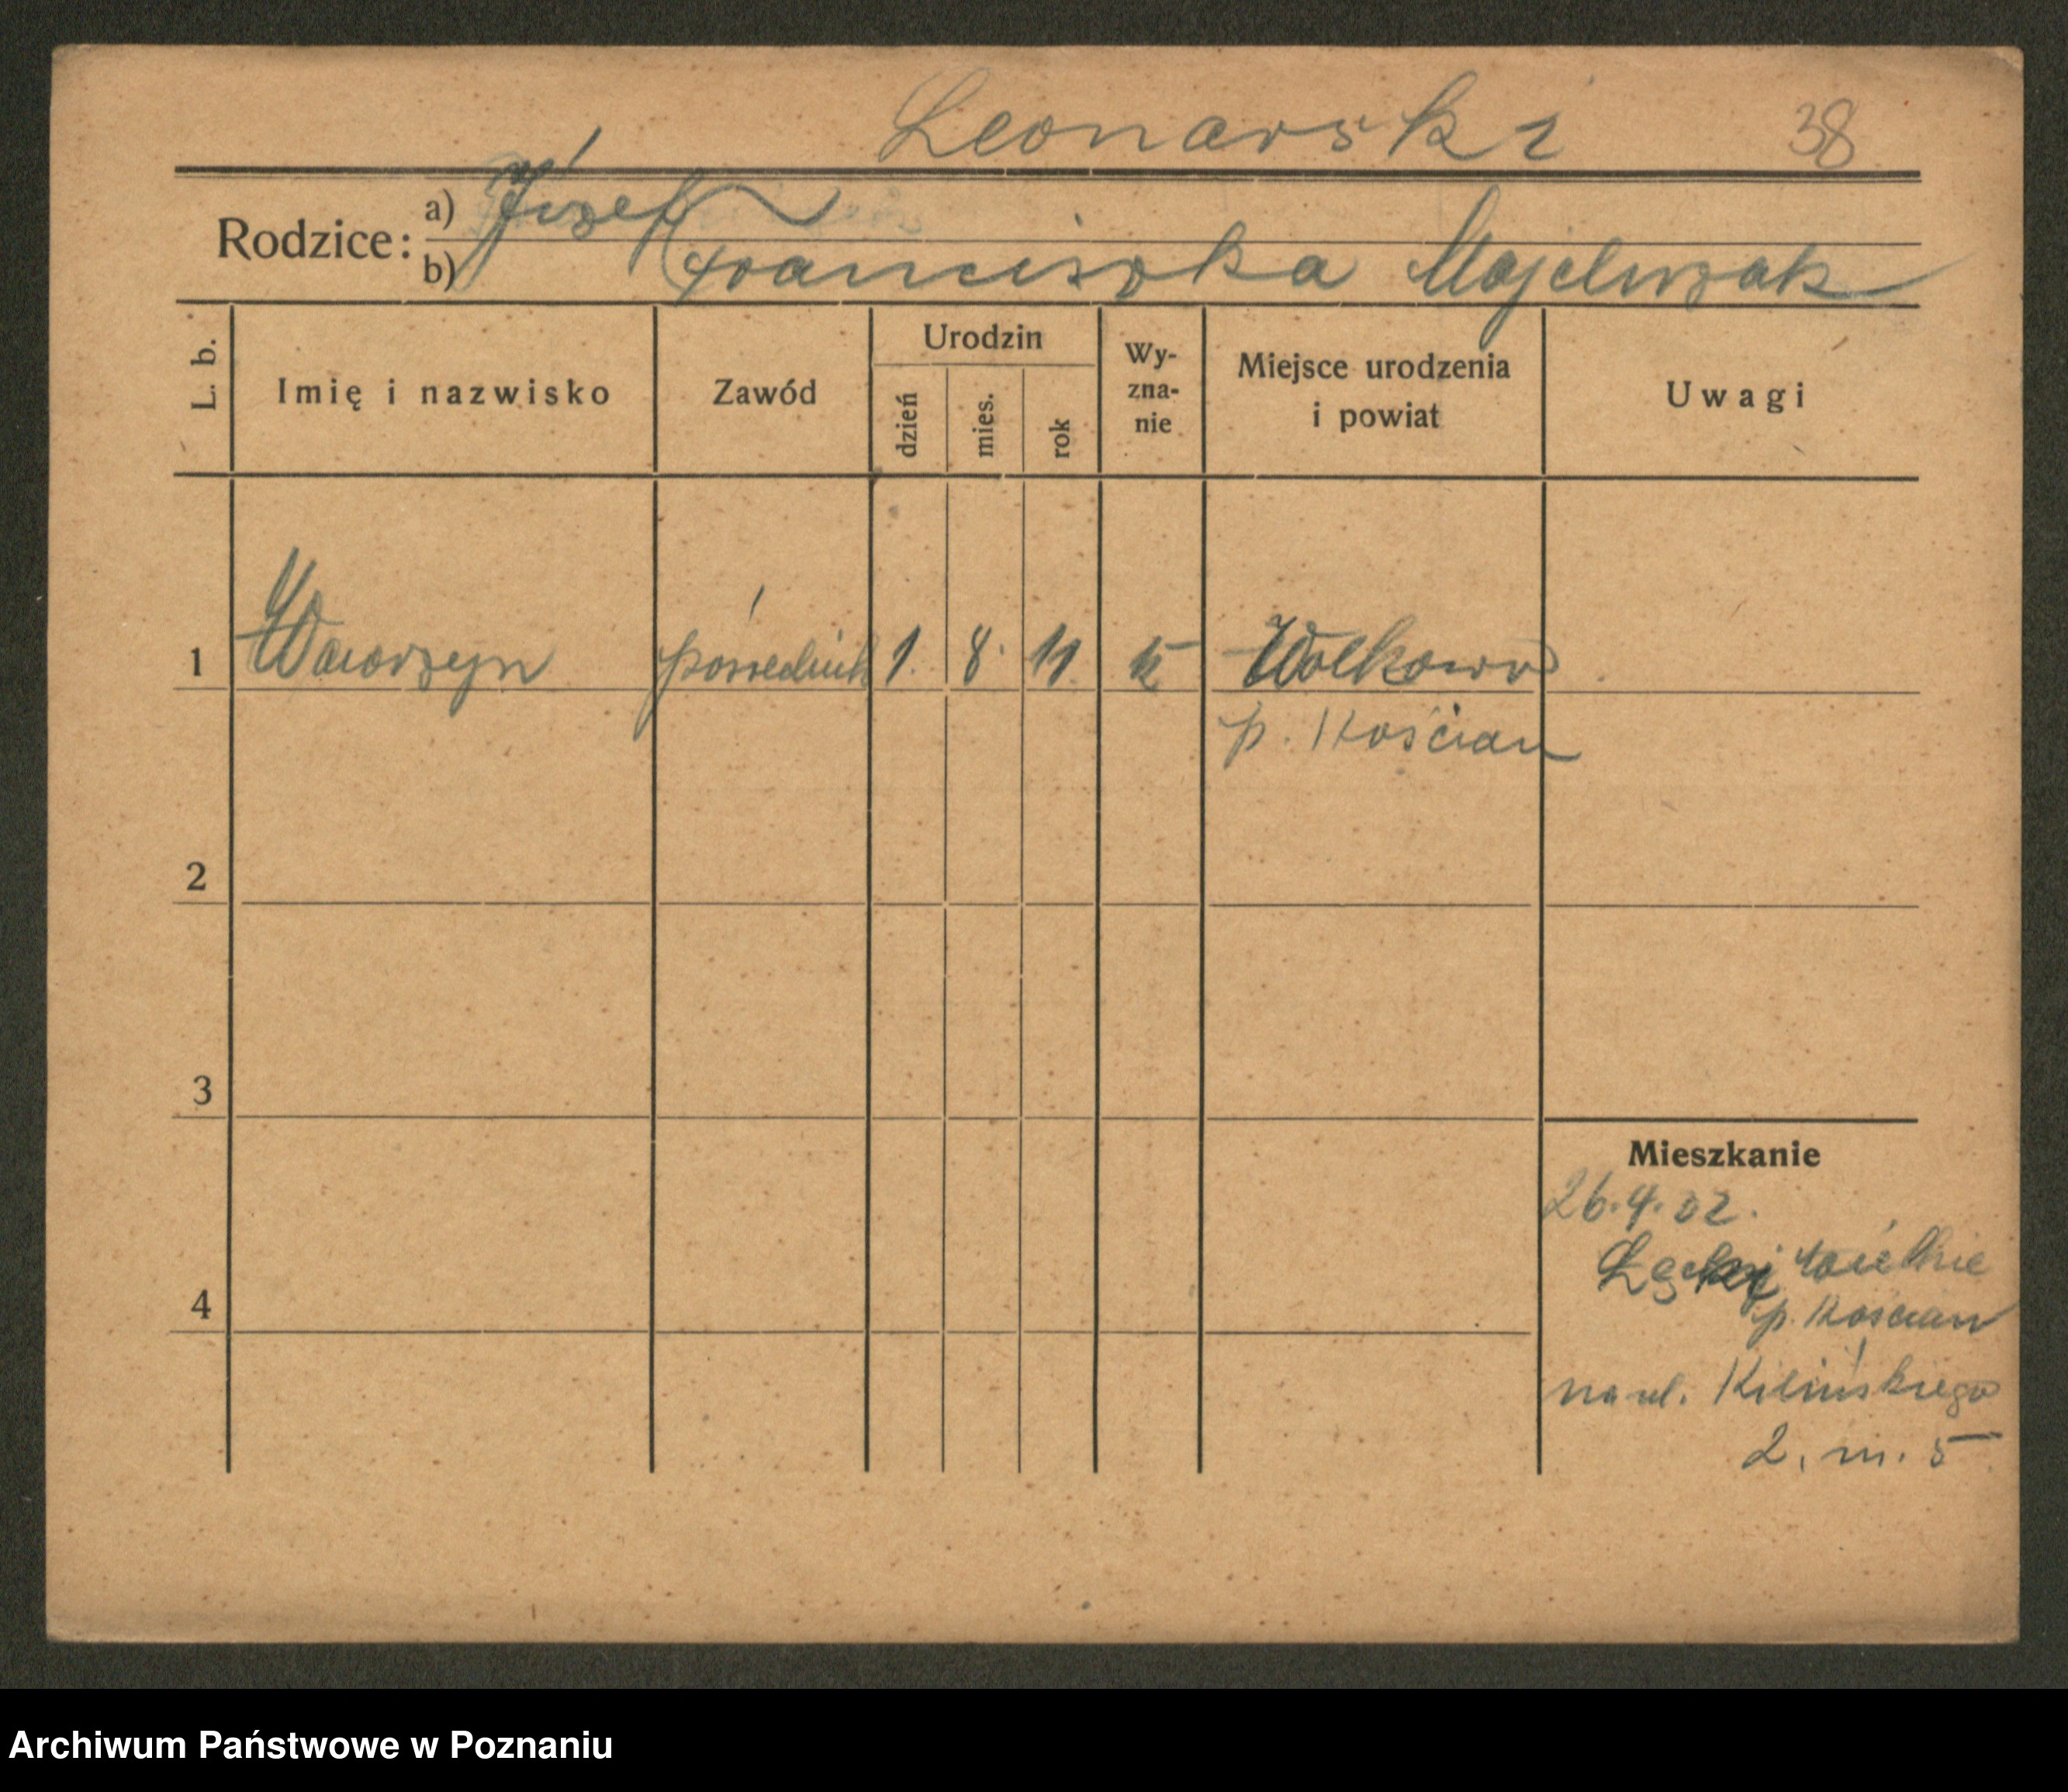 Leonarski 38
Rodzice: a) Józef
b) Franciszka Majchrzak
L. b. Imię i nazwisko Zawód Urodzin dzień mies. rok Wy-zna-nie Miejsce urodzenia i powiat Uwagi
1 Wawrzyn pośrednik 1. 8. 11. k Wolkowo
p. Kościan
2
3
Mieszkanie
26.4.32.
Łęki Wielkie
4
p. Kościan
na ul. Kilińskiego
2. m. 5
Archiwum Państwowe w Poznaniu